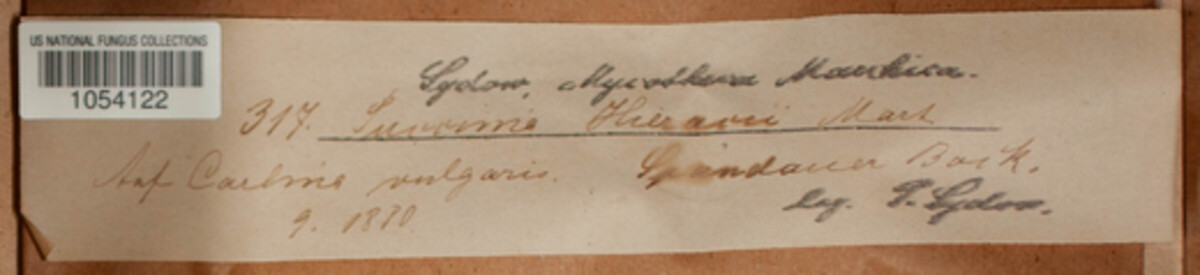 US NATIONAL FUNGUS COLLECTIONS
1054122
Sydow, Mycotheca Marchica.
317. Puccinia Hieracii Mart
Auf Carlina vulgaris. Spandauer Bock.
9. 1880
Leg. P. Sydow.